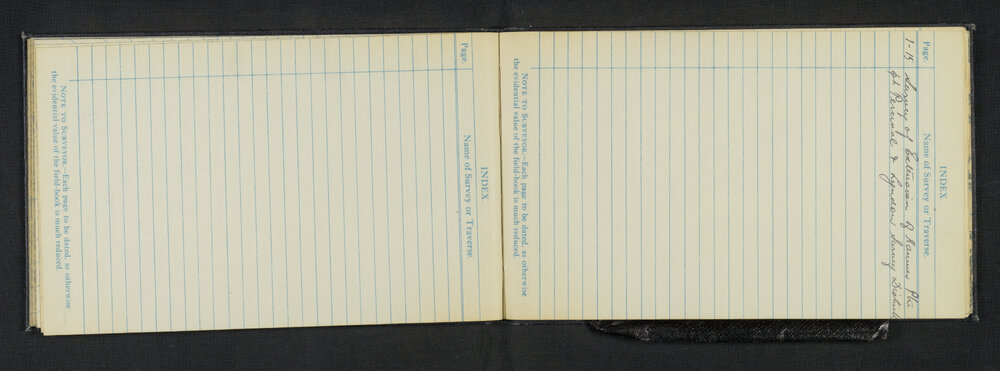 INDEX.
Page. Name of Survey or Traverse.
NOTE TO SURVEYOR.—Each page to be dated, as otherwise
the evidential value of the field-book is much reduced.
INDEX.
Page. Name of Survey or Traverse.
1-15 Survey of Extension of Hanmer Pln
Percival & Lyndon Survey Districts
NOTE TO SURVEYOR.—Each page to be dated, as otherwise
the evidential value of the field-book is much reduced.